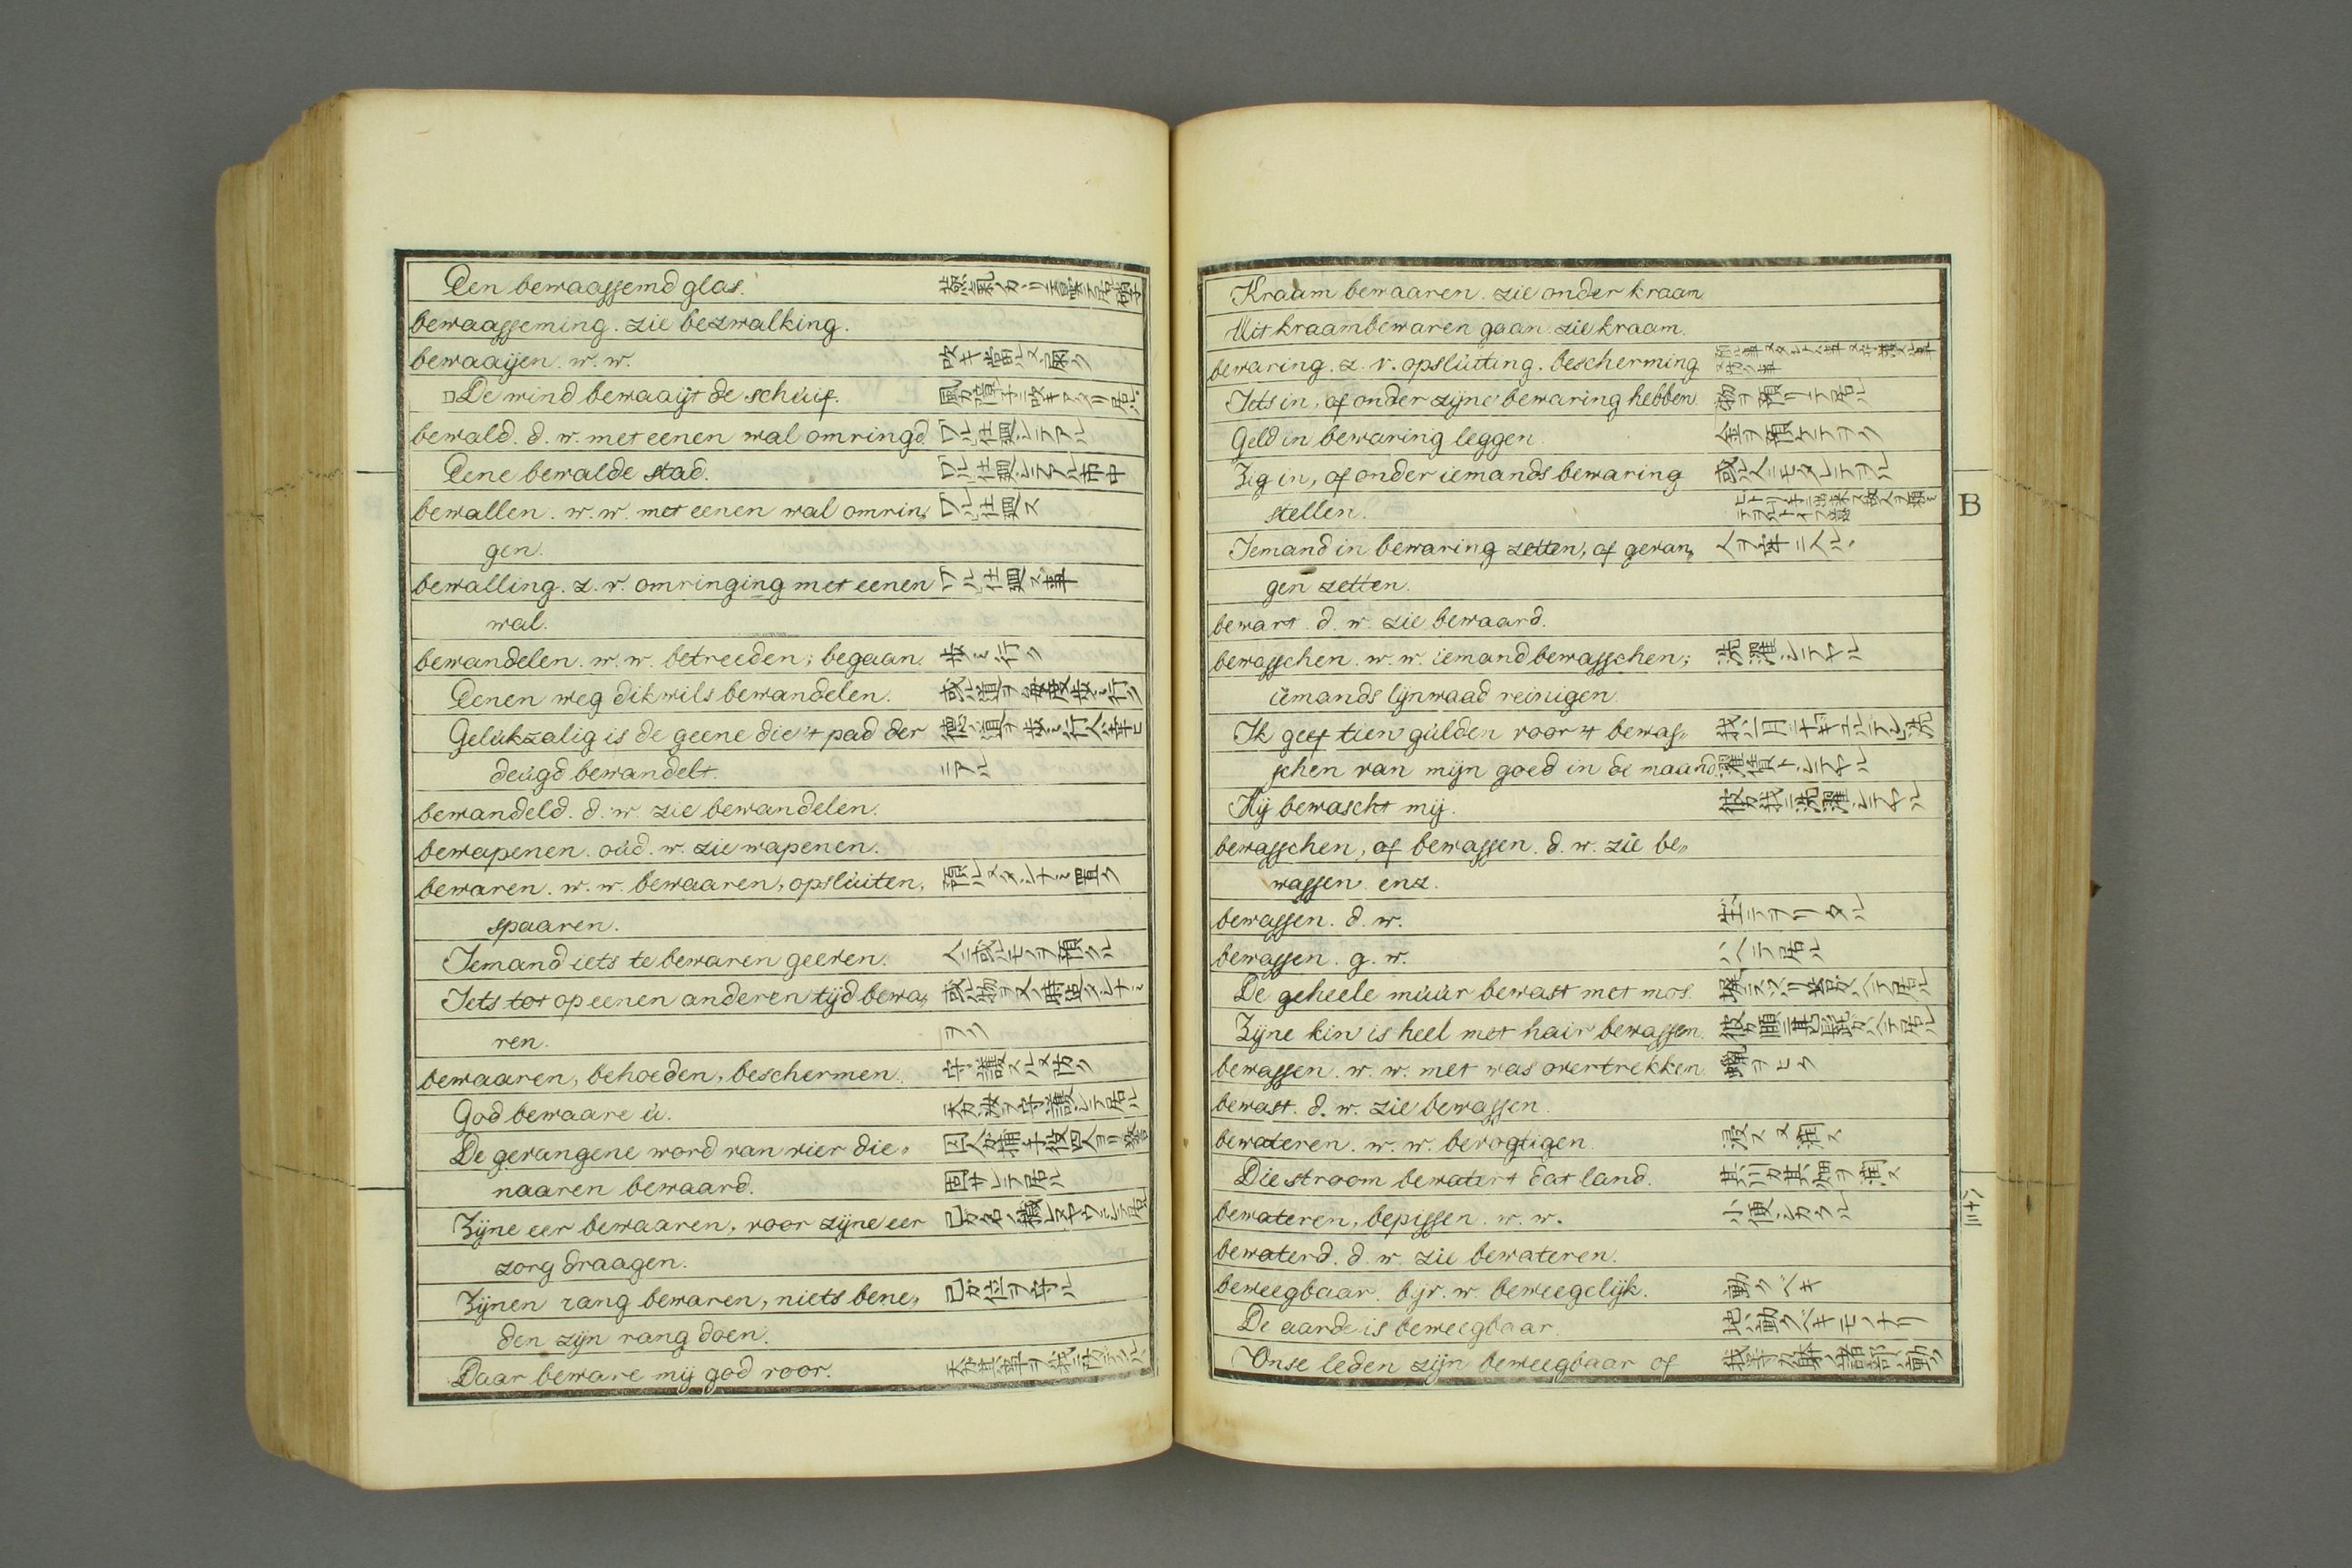 Een bewaassemd glas.
bewaasseming. zie bezwalking.
bewaaijen. w. w. 吹キ當ル又扇ク
De wind bewaaijt de schúif. 風カ障子ニ吹キアタリ居ル
bewald. d. w. met eenen wal omringd ワル仕廻シテアル
Eene bewalde stad. ワル仕廻シテアル市中
bewallen. w. w. met eenen wal omrin, ワル仕廻ス
gen.
bewalling. z. v. omringing met eenen ワル仕廻ス事
wal.
bewandelen. w. w. betreeden; begaan. 歩ミ行ク
Eenen weg dikwils bewandelen. 或ル道ヲ毎度歩ミ行ク
Gelúkzalig is de geene die 't pad der 徳ノ道ヲ歩ミ行人ハ幸ヒ
deúgd bewandelt. ニアル
bewandeld. d. w. zie bewandelen.
bewapenen. oúd. w. zie wapenen.
bewaren. w. w. bewaaren, opslúiten, 預ル又タシナミ置ク
spaaren.
Iemand iets te bewaren geeven. 人ニ或ルモノヲ預クル
Iets tot op eenen anderen tijd bewa, 或ル物ヲ又ノ時迠タシナミ
ren. ヲク
bewaaren, behoeden, beschermen. 守護スル又防ク
God bewaare ú. 天カ汝ヲ守護シテ居ル
De gevangene word van vier die, 囚人カ捕手役四人ヨリ警
naaren bewaard. 固サレテ居ル
Zijne eer bewaaren, voor zijne eer
zorg draagen.
Zijnen rang bewaren, niets bene, 己カ位ヲ守ル
den zijn rang doen.
Daar beware mij god voor.
Kraam bewaaren. zie onder kraam
Uit kraambewaren gaan. zie kraam.
bewaring. z. v. opslúiting. bescherming
Iets in, of onder zijne bewaring hebben. 物ヲ預リテ居ル
Geld in bewaring leggen. 金ヲ預ケテヲク
Zig in, of onder iemands bewaring 或ル人ニモタレテヲル
stellen.
B
Iemand in bewaring zetten, of gevan, 人ヲ牢ニ入ル
gen zetten.
bewart. d. w. zie bewaard.
bewasschen. w. w. iemand bewasschen; 洗濯シテヤル
iemands lijnwaad reinigen.
Ik geef tien gúlden voor 't bewas, 我ハ一月ニ十ギュルデン洗
schen van mijn goed in de maand 濯賃トシテヤル
Hij bewascht mij. 彼カ我ニ洗濯シテヤル
bewasschen, of bewassen. d. w. zie be,
wassen. enz.
bewassen. d. w. 生シテヲリタル
bewassen. g. w. ハヘテ居ル
De geheele múúr bewast met mos.
Zijne kin is heel met hair bewassen.
bewassen. w. w. met was overtrekken. 蠟ヲヒク
bewast. d. w. zie bewassen.
bewateren. w. w. bevogtigen. 浸ス又潤ス
Die stroom bewatert dat land. 其川カ其畑ヲ潤ス
bewateren, bepissen. w. w. 小便シカクル
bewaterd. d. w. zie bewateren.
beweegbaar. bijv. w. beweegelijk. 動クベキ
De aarde is beweegbaar. 地ハ動クベキモノナリ
Onse leden zijn beweegbaar of 我等カ躰ノ諸部ハ動ク